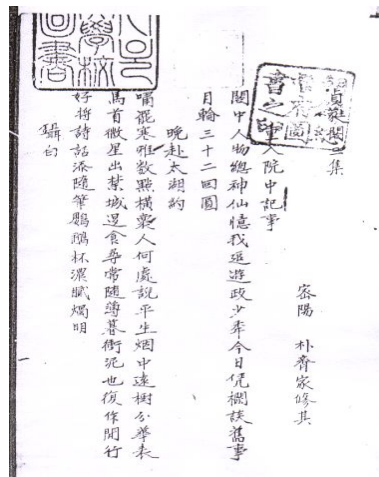 貞蕤閣集
密陽 朴齊家修其
入院中記事
閣中人物總神仙憶我追遊政少年今日凭欄談舊事
月輪三十二回圓
晚赴太湖約
嘯罷寒雅數點橫褰人何處說平生烟中遠樹分華表
馬首微星出禁城退食尋常隨導暮街泥也復作閒行
好將詩話添隨筆鸚鵡杯濃膩燭明
學校
圖書
書之印